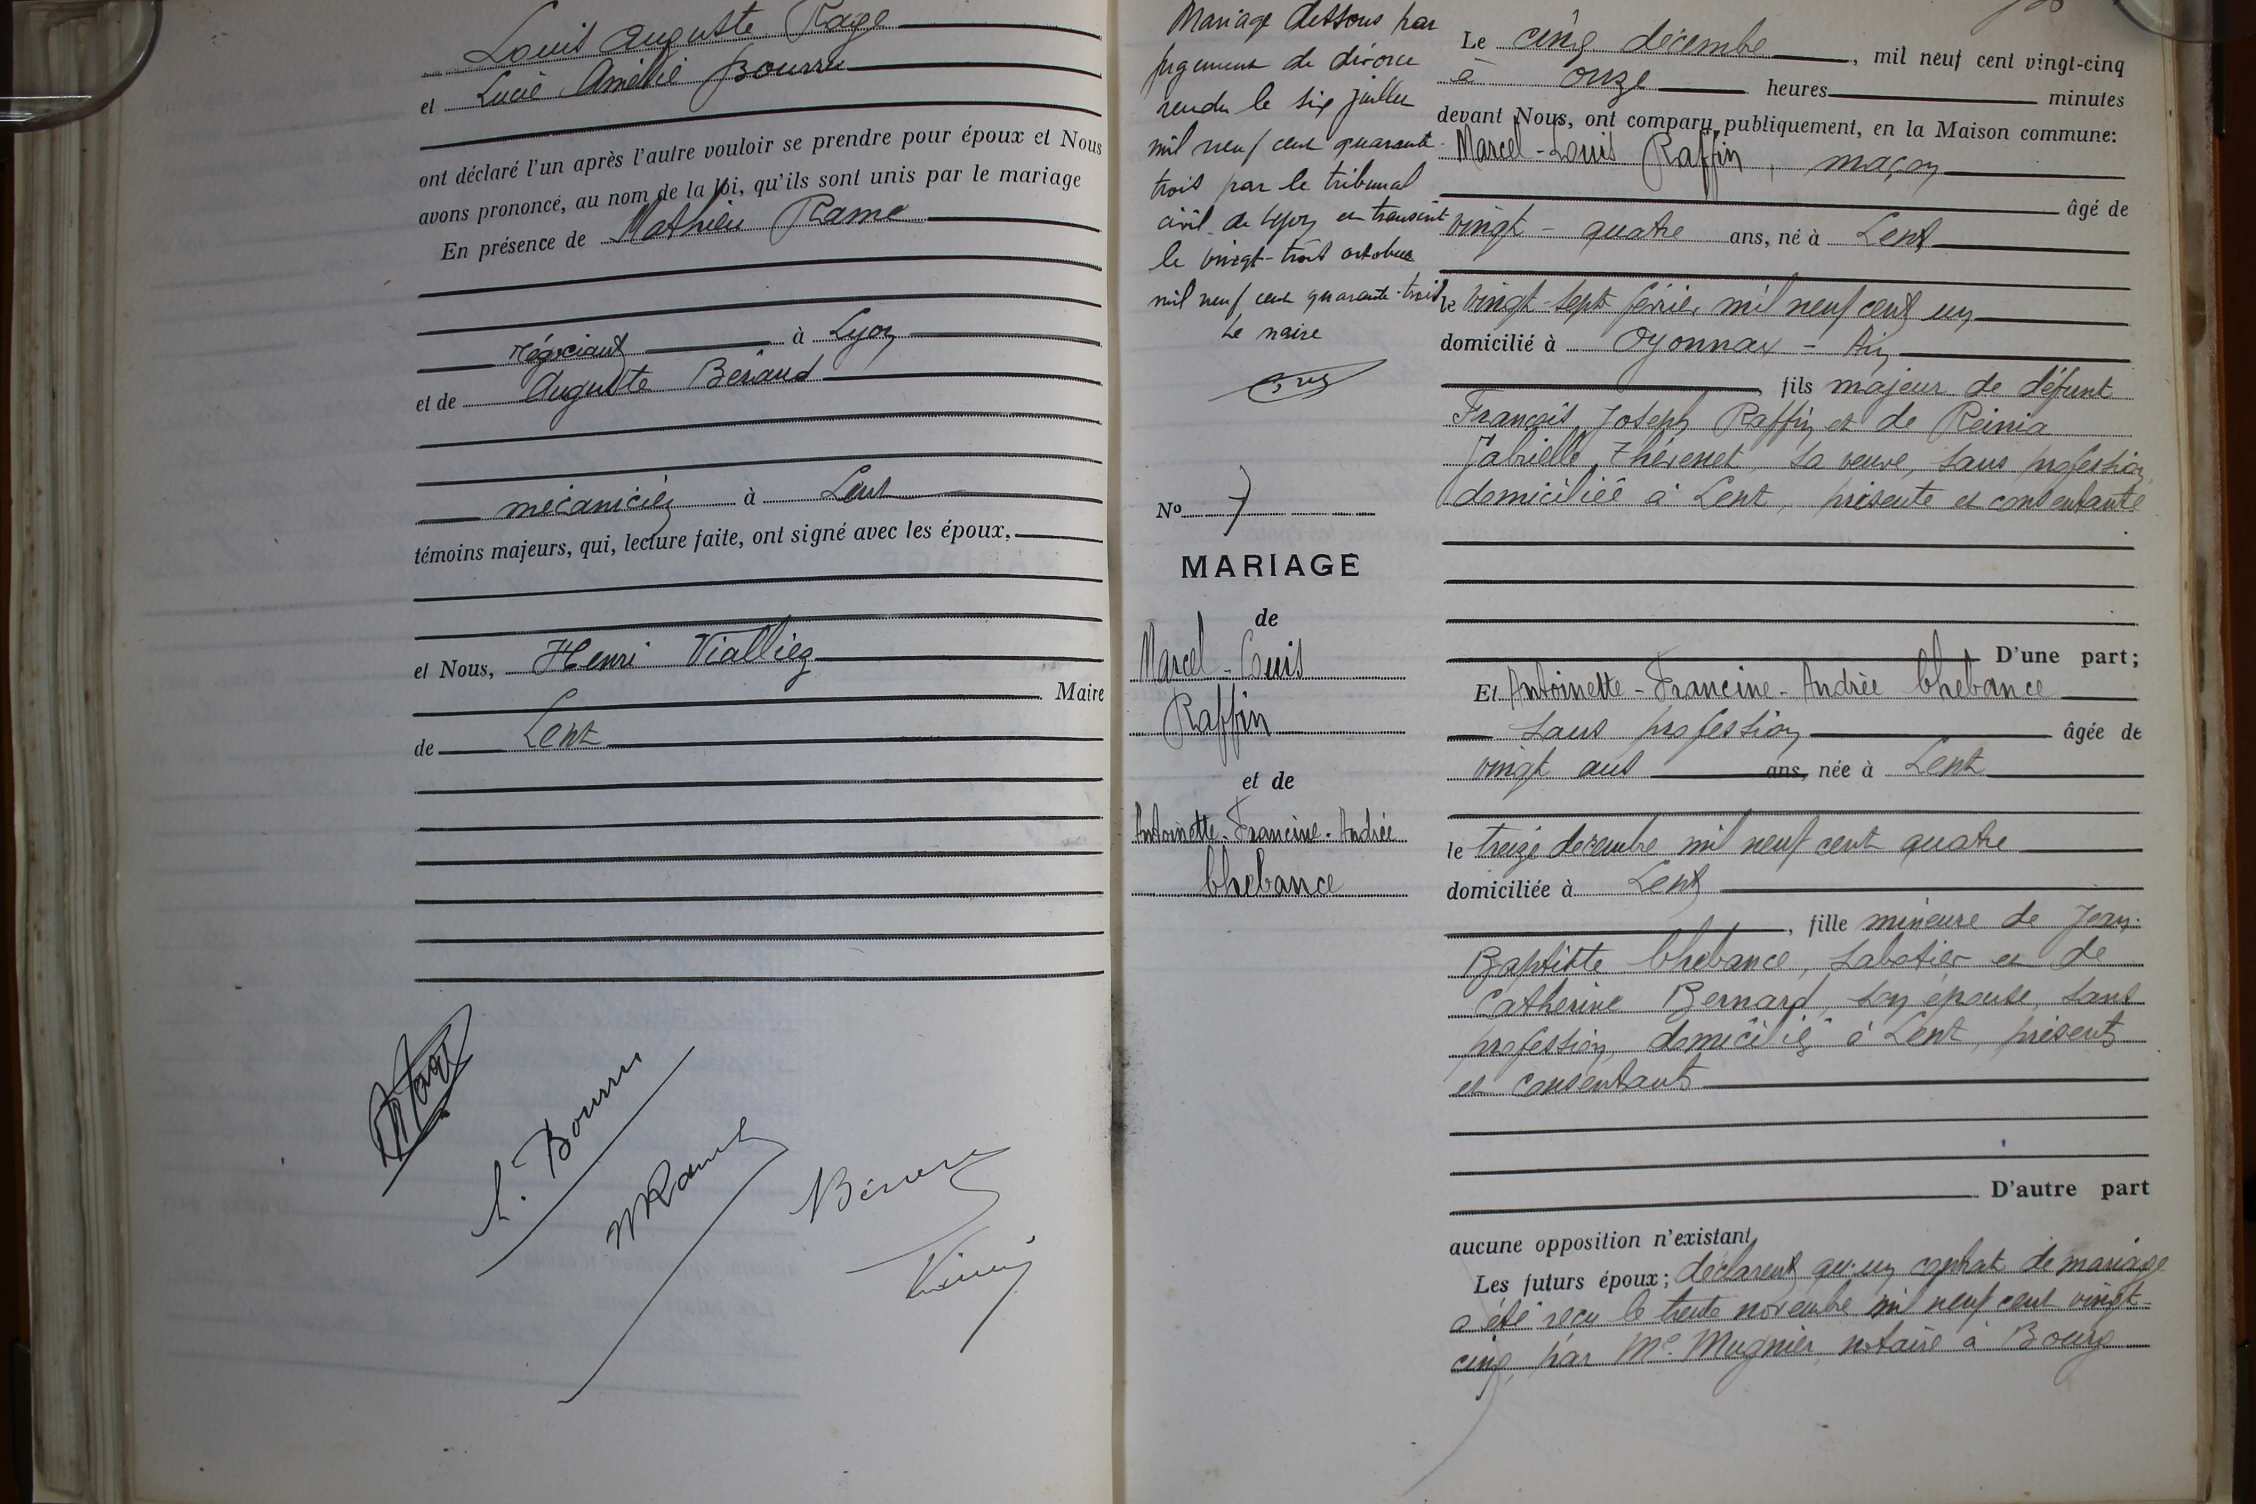 Louis Auguste Rage
et Lucie Amélie Bourru
ont déclaré l'un après l'autre vouloir se prendre pour époux et Nous
avons prononcé, au nom de la loi, qu'ils sont unis par le mariage
En présence de Mathieu Rame
négociant à Lyon
et de Auguste Béraud
mécanicien à Lent
témoins majeurs, qui, lecture faite, ont signé avec les époux,
et Nous, Henri Viallier
Maire
de Lent
L. Bourru
M Rame
Mariage dessous par
jugement de divorce
rendu le six juillet
mil neuf cent quarante-
trois par le tribunal
civil de Lyon et transcrit
le vingt-trois octobre
mil neuf cent quarante-trois
Le maire
No 7
MARIAGE
de
Marcel-Louis
Raffin
et de
Antoinette-Francine-Andrée
Chebance
Le cinq décembre, mil neuf cent vingt-cinq
à onze heures minutes
devant Nous, ont comparu publiquement, en la Maison commune:
Marcel-Louis Raffin, maçon
âgé de
vingt-quatre ans, né à Lent
le vingt-sept février mil neuf cent un
domicilié à Oyonnax - Ain
fils majeur de défunt
François Joseph Raffin et de
Gabrielle Thévenet, sa veuve, sans profession,
domiciliée à Lent, présente et consentante
D'une part;
Et Antoinette-Francine-Andrée Chebance
sans profession âgée de
vingt ans ans, née à Lent
le treize décembre mil neuf cent quatre
domiciliée à Lent
, fille mineure de Jean-
Baptiste Chebance, sabotier et de
Catherine Bernard, son épouse, sans
profession, domiciliés à Lent, présents
et consentants
D'autre part
aucune opposition n'existant
Les futurs époux; déclarent qu'un contrat de mariage
a été reçu le trente novembre mil neuf cent vingt-
cinq, par Me. Mugnier, notaire à Bourg